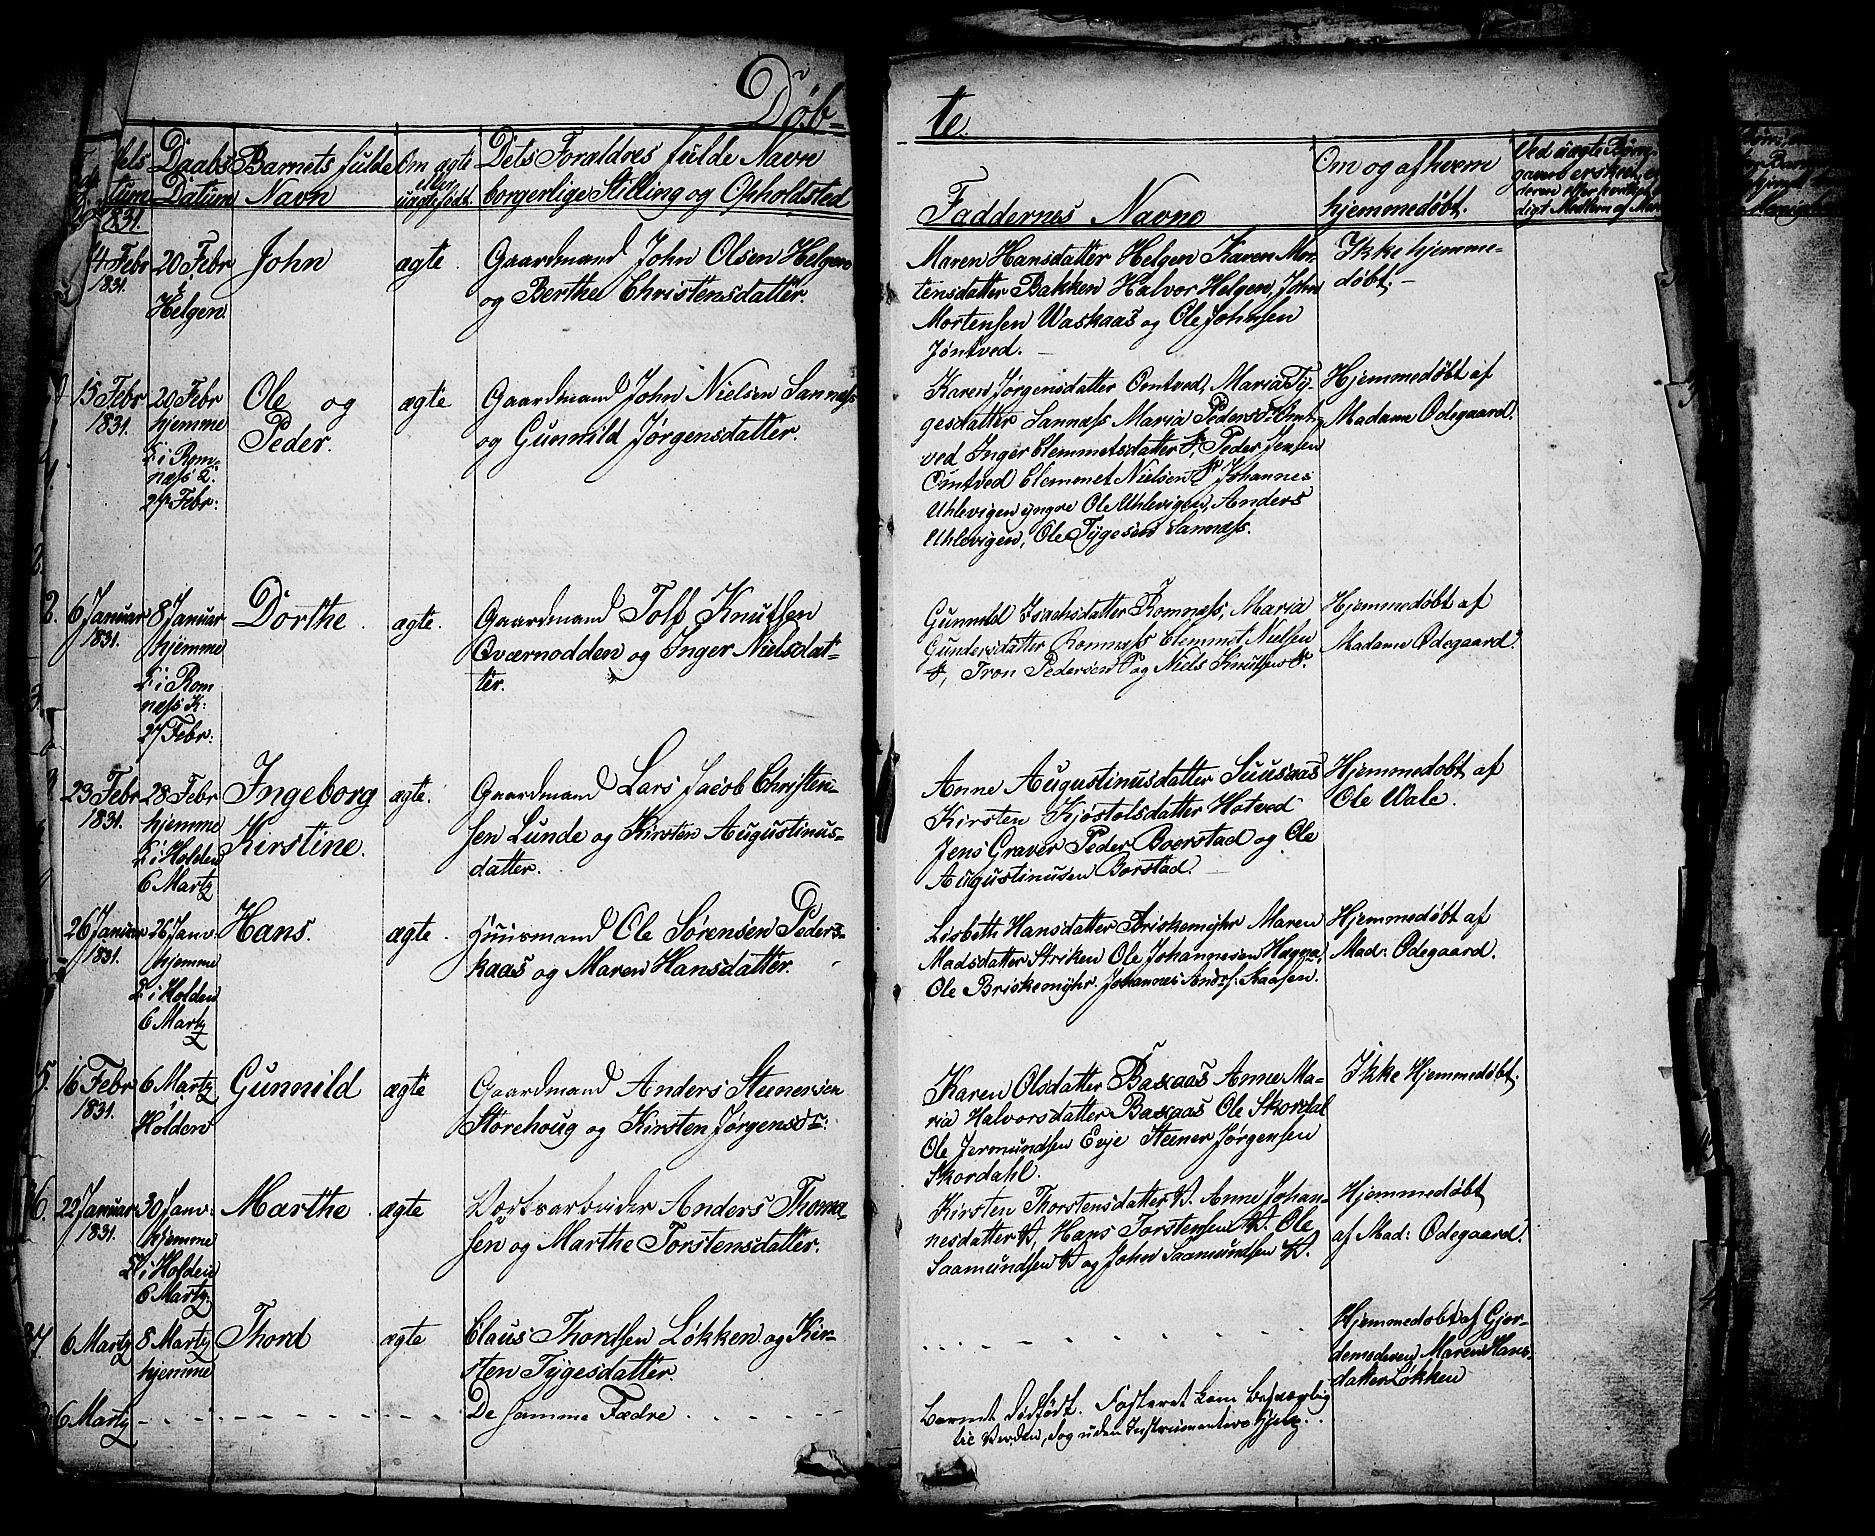 Døb-
te.
Daabs
Datum
Barnets fulde
Navn
Om ægte
eller
uægtefødt.
Dets Forældres fulde Navn
borgerlige Stilling og Opholdsted
Faddernes Navne
Om og af hvem
hjemmedøbt.
1831.
14 Febr
1831.
20 Febr
i
Helgen
John
ægte.
Gaardmand John Olsen Helgen
og Berthe Christensdatter.
Maren Hansdatter Helgen Karen Mor-
tensdatter Bakken Halvor Helgen, John
Mortensen Waskaas og Ole Johnsen
Jøntved.
Ikke hjemme-
døbt.
15 Febr
1831.
20 Febr
hjemme
i Rom-
næss K.
27 Febr:
Ole og
Peder.
ægte
Gaardmand John Nielsen Sannæss
og Gunnild Jørgensdatter.
Karen Jørgensdatter Omtved, Maria Ty-
gesdatter Sannæss Maria Pedersdr Omt-
ved Inger Clemmetsdatter Peder Jensen
Omtved Clemmet Nielsen Johannes
Uhlevigen yngre Ole Uhlevigen, Anders
Uhlevigen, Ole Tygesen Sannæss.
Hjemmedøbt af
Madame Ødegaard.
6 Januar
1831.
8 Januar
hjemme
i Rom
næss K:
27 Febr:
Dorthe
ægte.
Gaardmand Tolf Knutsen
Qværnodden og Inger Nielsdat-
ter.
Gunnild Isachsdatter Romnæss, Maria
Gundersdatter Romnæss Clemmet Nielsen
Tron Pedersen og Niels Knutsen
Hjemmedøbt af
Madame Ødegaard.
23 Febr
1831.
28 Febr
hjemme
i Holden
6 Marty
Ingeborg
Kirstine.
ægte.
Gaardmand Lars Jacob Christen-
sen Lunde og Kirsten Augustinus-
datter.
Anne Augustinusdatter Suusaas
Kirsten Kjøstolsdatter Hotved
Jens Graver Peder Boerstad og Ole
Augustinusen Borstad.
Hjemmedøbt af
Ole Wale.
26 Januar
1831.
26 Janv:
hjemme
i Holden
6 Marty
Hans.
ægte.
Huusmand Ole Sørensen Peders-
kaas og Maren Hansdatter.
Lisbeth Hansdatter Briskemyhr Maren
Madsdatter Striken Ole Johannesen Hægna,
Ole Briskemyhr. Johannes Andrs: Kaasen.
Hjemmedøbt af
Mad: Ødegaard.
5.
16 Febr
1831.
6 Marty
i
Holden
Gunnild
ægte
Gaardmand Anders Steenersen
Storehoug og Kirsten Jørgensdr:
Karen Olsdatter Baxaas Anne Ma-
ria Halvorsdatter Baxaas Ole Skordal
Ole Jermundsen Evje Steener Jørgensen
Skordahl
Ikke Hjemmedøbt
6.
22 Januar
1831.
30 Janv:
hjemme
i Holden
6 Marty.
Marthe
ægte
Værksarbeider Anders Thoma-
sen og Marthe Torstensdatter.
Kirsten Thorstensdatter V. Anne Johan-
nesdatter V. Hans Torstensen V. Ole
Saamundsen V og John Saamundsen V.
Hjemmedøbt
af Mad: Ødegaard.
37.
6 Marty
8 Marty
hjemme
Thord
ægte
Claus Thordsen Løkken og Kir-
sten Tygesdatter.
Hjemmedøbt af Gjor-
demoderen Maren Hans-
datter Løkken
6 Marty
De samme Fædre
Barnet dødfødt. Fosteret kom besværlig
til Verden, dog uden Instrumenters Hjelp.